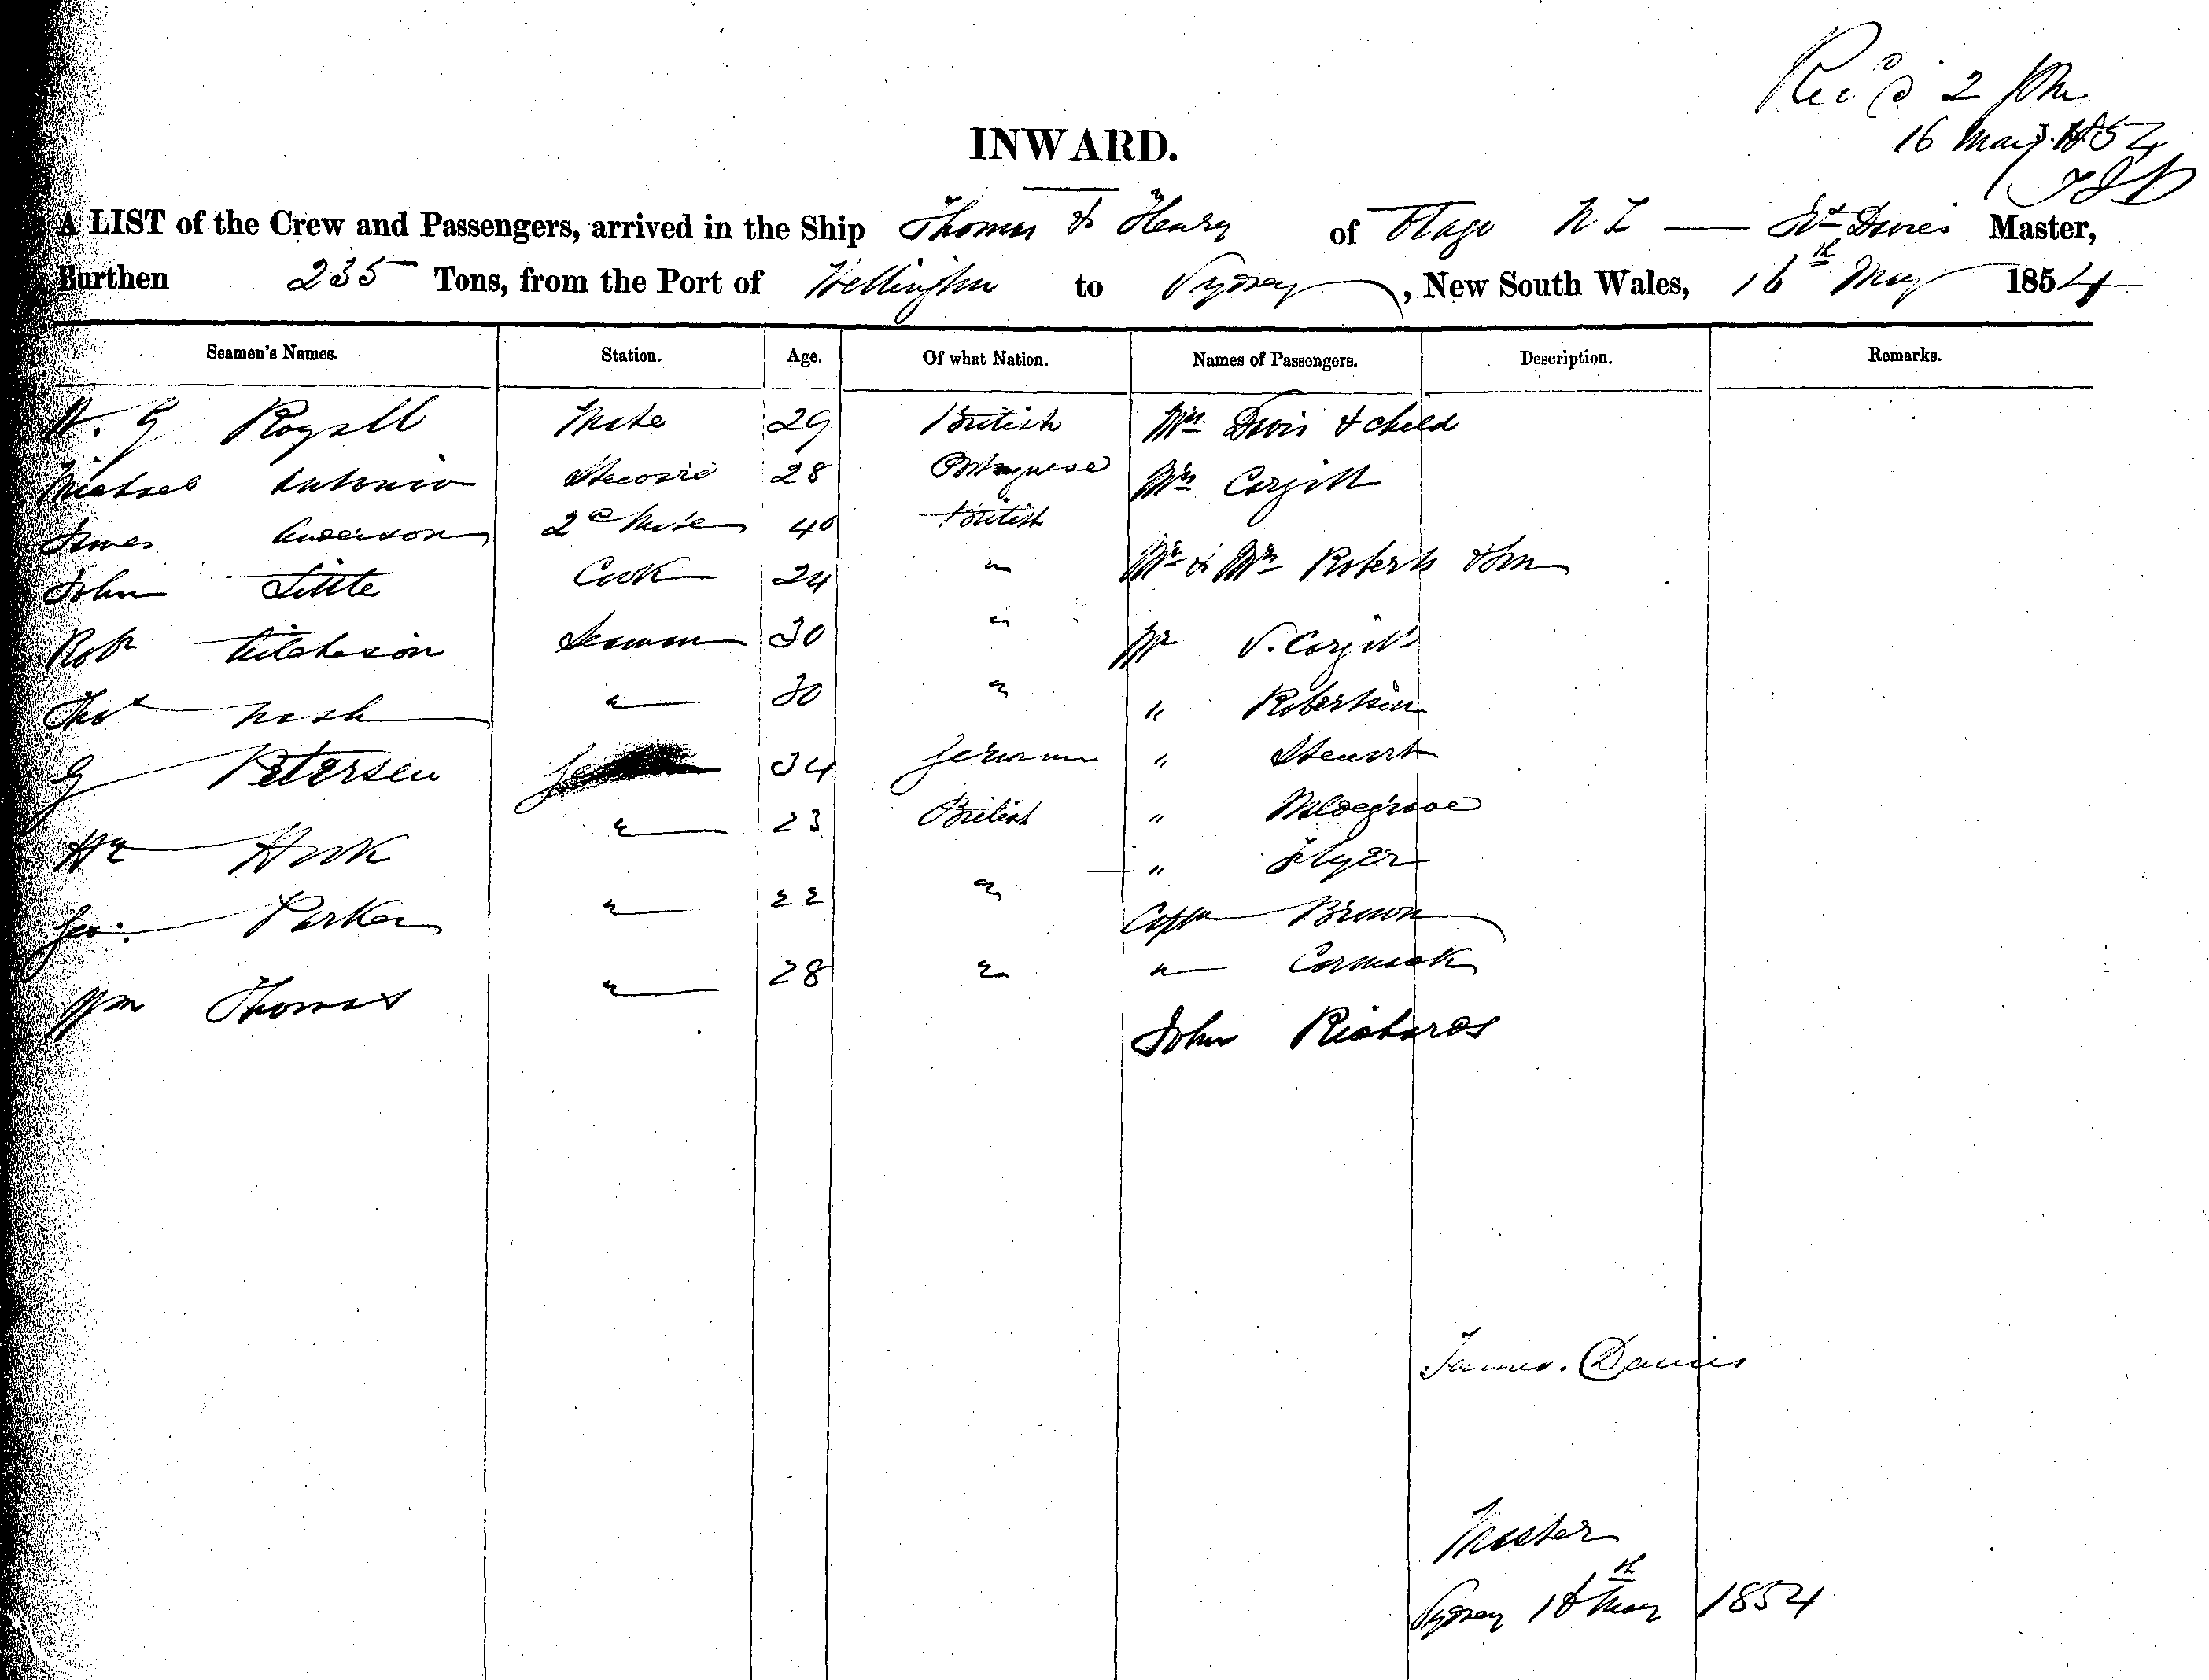 Rec'd 2 pm
16 May 1854
INWARD.
A LIST of the Crew and Passengers, arrived in the Ship Thomas & Henry of Otago N Z — Davies Master,
Burthen 235 Tons, from the Port of Wellington to Sydney, New South Wales, 16th May 1854
Seamen's Names. Station. Age. Of what Nation. Names of Passengers. Description. Remarks.
Royall Mate 29 British Mrs Davis & child
Michael Antonio Steward 28 Portuguese Mrs Cargill
James Anderson 2d Mate 40 British
John Little Cook 24 " Mr & Mrs Roberts & Son
Robt Aitcheson Seaman 30 " Mr Cargill
Thos Nash " 30 " " Robertson
G Petersen 34 German " Stewart
Hy Hook " 23 British " Musgrove
" Flyer
Geo: Parker " 22 " Captn Brown
Wm Thomas " 28 " " Cormack
John Richards
James. Davies
Master
Sydney 16th May 1854